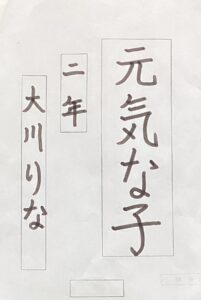 元気な子
二年
大川りな